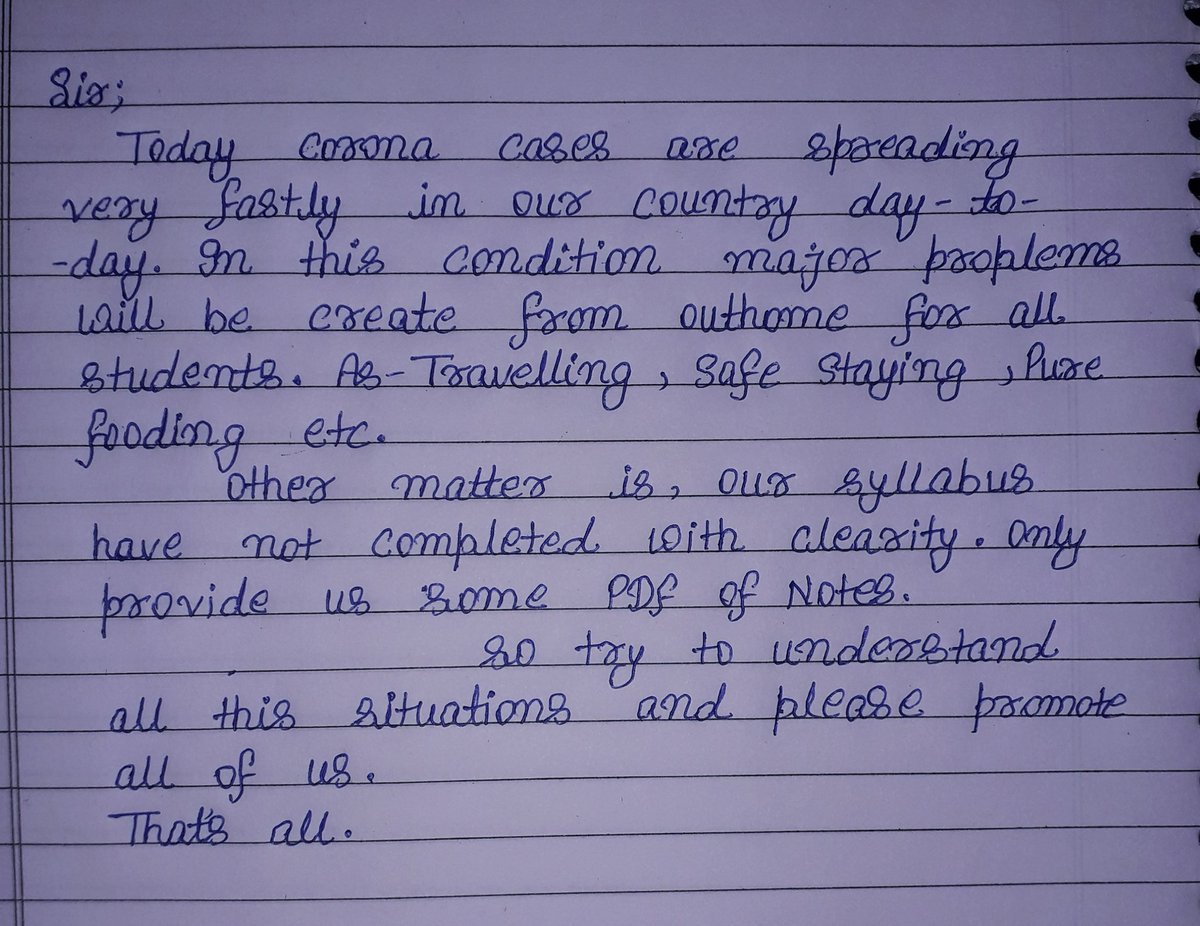 Sir;
Today corona cases are spreading
very fastly in our country day-to-
-day. In this condition major proplems
will be create from outhome for all
students. As-Travelling, Safe Staying, Pure
fooding etc.
Other matter is, our syllabus
have not completed with clearity. Only
provide us some PDF of Notes.
So try to understand
all this situations and please promote
all of us.
That's all.